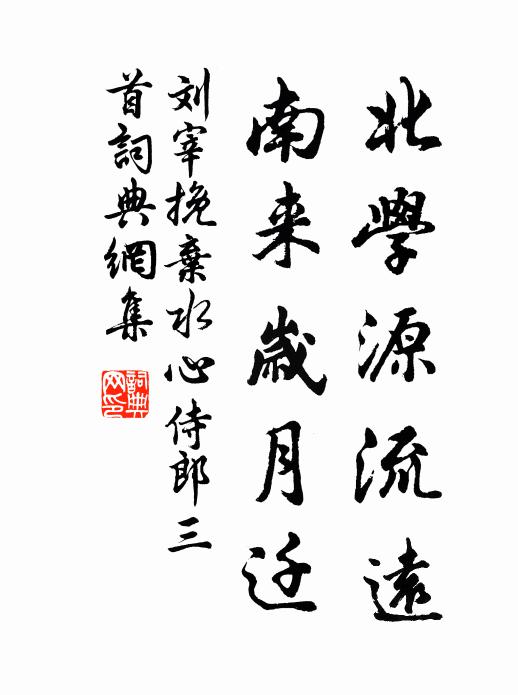 北學源流遠
南来歲月迁
刘宰挽棄水心侍郎三
首詞典網集
詞典
网印